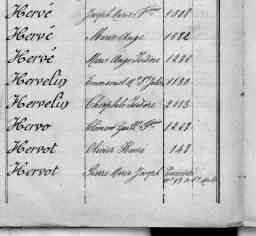 Hervé Joseph Marie Fs. 1808
Hervé Marie Ange 1092
Hervé Marie Ange Isidore 1236
Hervelin Emmanuel M. St. Jules 1130
Hervelin Théophile Isidore 2053
Hervo Clément Guill. Fs. 1263
Hervot Olivier 148
Hervot Pierre Marie Joseph